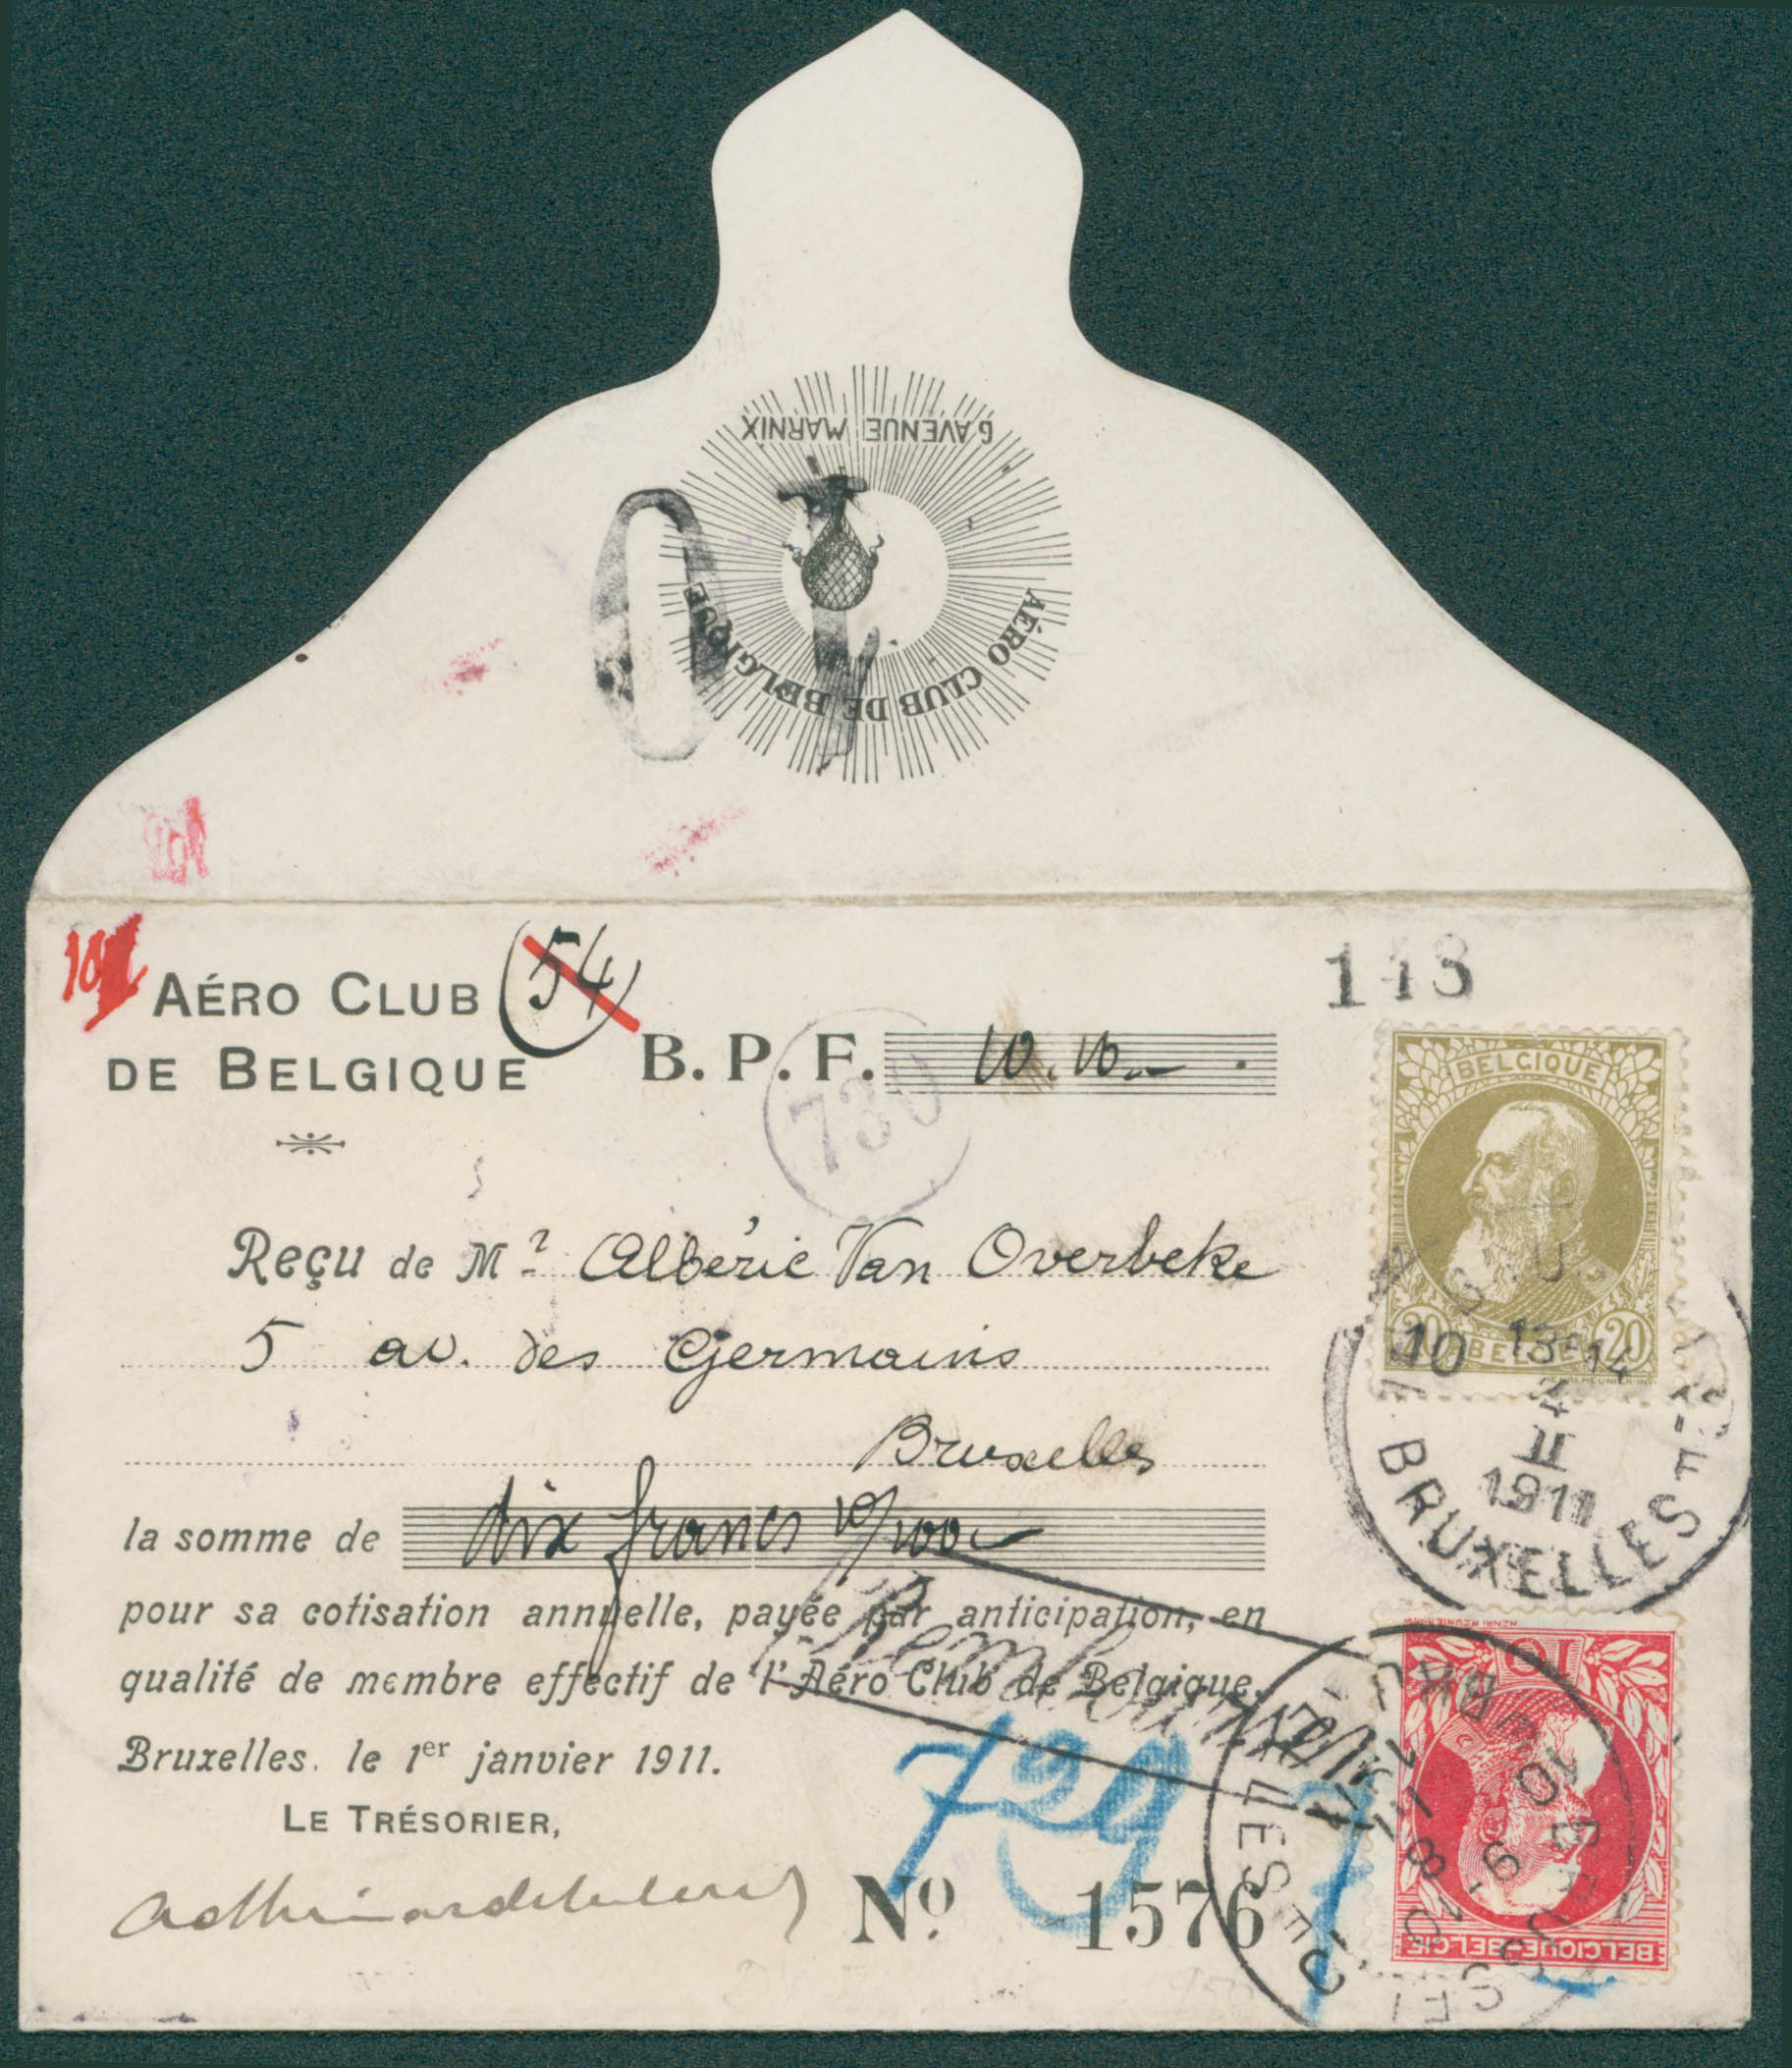 6 AVENUE MARNIX
AÉRO CLUB DE BELGIQUE
143
AÉRO CLUB
DE BELGIQUE
54
B. P. F. 10.10.-
730
BELGIQUE
20 20
BELGIE
Reçu de Mr Albéric Van Overbeke
5 av. des Germains
Bruxelles
10 13-14
4
II
1911
BRUXELLES
la somme de dix francs 10/100
pour sa cotisation annuelle, payée par anticipation, en
qualité de membre effectif de l'Aéro Club de Belgique.
Bruxelles. le 1er janvier 1911.
LE TRÉSORIER,
729
No 1576
10
BELGIQUE-BELGIE